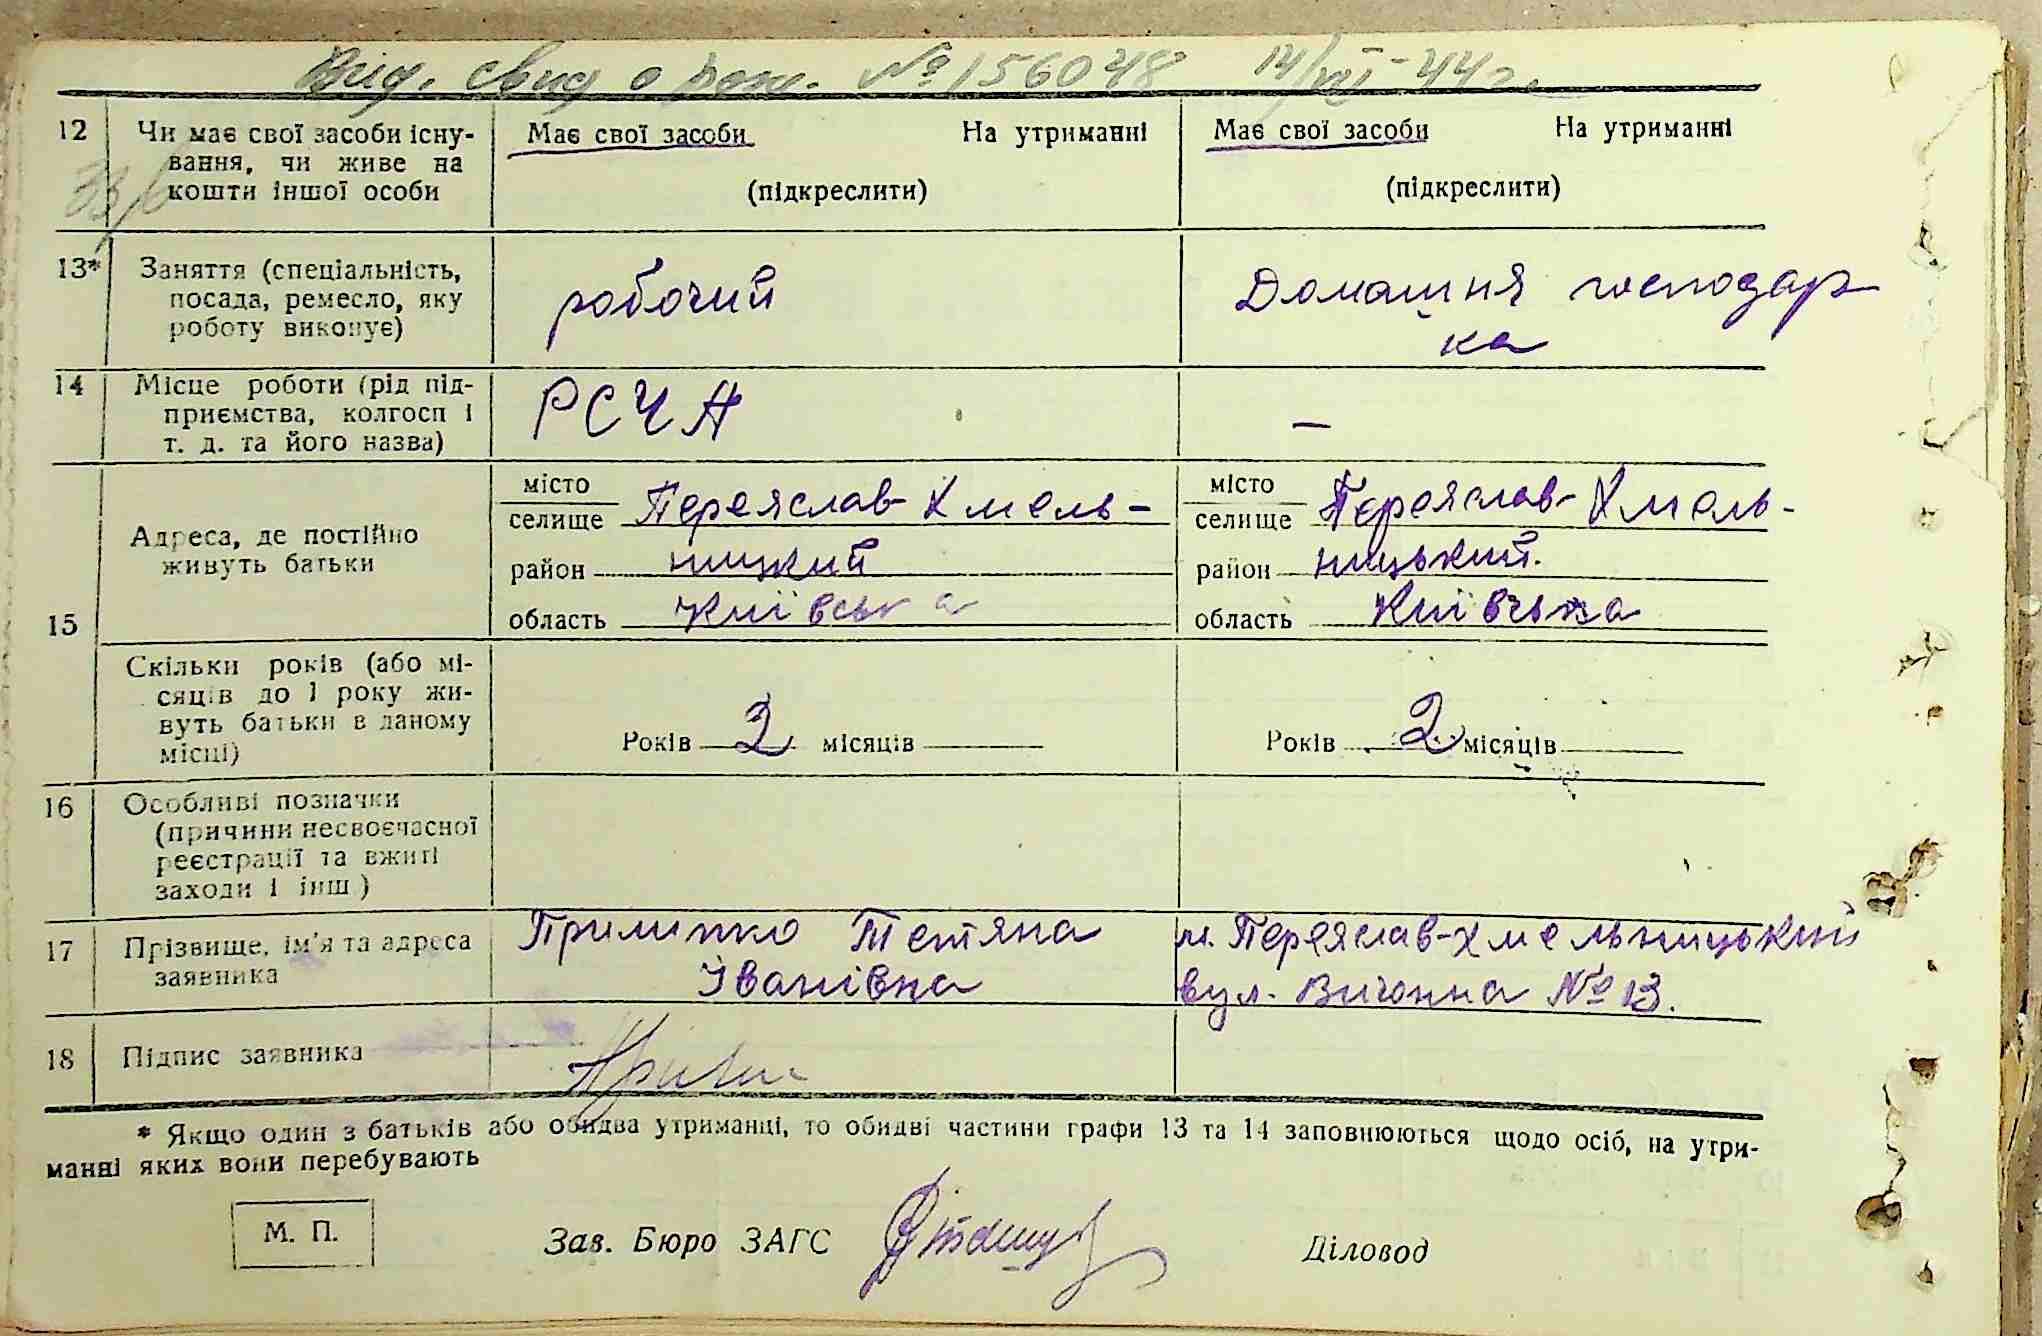 Вид. свид о рож. № 156048 14/VII-44 г.
12 Чи має свої засоби існу-
вання, чи живе на
кошти іншої особи
Має свої засоби На утриманні
(підкреслити)
Має свої засоби На утриманні
(підкреслити)
13* Заняття (спеціальність,
посада, ремесло, яку
роботу виконує)
робочий
Домашня господар
ка
14 Місце роботи (рід під-
приємства, колгосп і
т. д. та його назва)
РСЧА
–
15
Адреса, де постійно
живуть батьки
місто
селище Переяслав-Хмель-
район ницкий
область Київська
місто
селище Переяслав-Хмель-
район ницький.
область Київська
Скільки років (або мі-
сяців до 1 року жи-
вуть батьки в даному
місці)
Років 2 місяців
Років 2 місяців
16 Особливі позначки
(причини несвоєчасної
реєстрації та вжиті
заходи і інш.)
17 Прізвище, ім'я та адреса
заявника
Прилипко Тетяна
Іванівна
м. Переяслав-Хмельницький
вул. Вигонна № 13.
18 Підпис заявника
* Якщо один з батьків або обидва утриманці, то обидві частини графи 13 та 14 заповнюються щодо осіб, на утри-
манні яких вони перебувають
М. П.
Зав. Бюро ЗАГС
Діловод